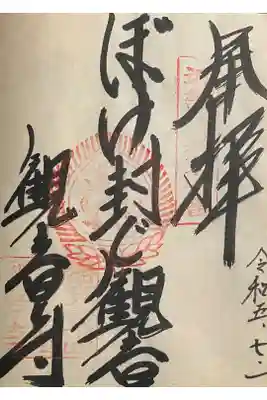 奉拝
令和五、七、一
ぼけ封じ観音
観音寺